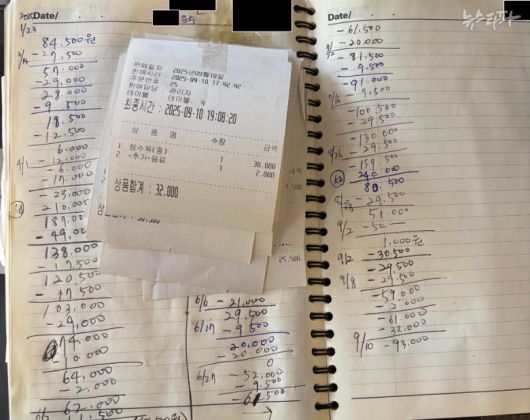 Date/
84.500원
- 27.500
57.000
- 29.000
28.000
- 9.500
18.500
- 12.500
6.000
- 12.000
- 6.000
- 17.000
- 23.000
210.000
187.000
- 49.000
138.000
- 17.500
120.500
- 17.500
103.000
- 29.000
74.000
10.000
64.000
- 2.000
62.000
판매일자 2025년09월10일
판매시간 2025-09-10 17:42:42
주문번호 25
판매담당 관리자
테이블 테이블 4
최종시간 : 2025-09-10 19:08:20
상 품 명 수량 금액
1 탕수육(중) 1 30.000
2 -추가-음료 1 2.000
상품합계 : 32.000
25.500
6/6 - 21.000
29.500
6/17 - 9.500
20.000
- 20.000
0
6/27 - 52.000
- 9.500
- 61.500
Date/
뉴스타파
- 61.500
- 20.000
- 81.500
- 9.500
- 91.000
9.500
- 100.500
- 29.500
- 130.000
- 29.500
- 159.500
240.000
80.500
- 29.500
51.000
9/2 - 50
1.000원
9/2 - 30.500
- 29.500
9/8 - 29.500
- 59.000
- 2.000
- 61.000
- 32.000
9/10 - 93.000